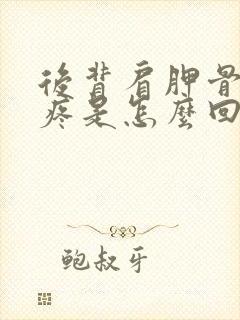 後背肩胛骨
疼是怎麼回
鲍叔牙